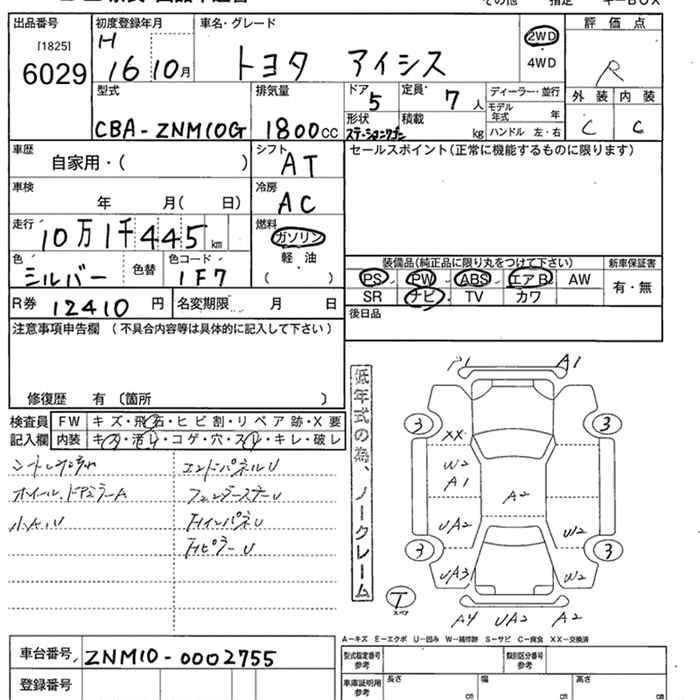 出品番号 初度登録年月 車名・グレード 評価点
[1825] H 2WD
6029 16 10月 トヨタ アイシス 4WD R
型式 排気量 ドア 5 定員 7人 ディーラー・並行 外装 内装
モデル年式 年 C C
形状 積載
CBA-ZNM10G 1800cc ステーションワゴン kg ハンドル 左・右
車歴 自家用・( ) シフト AT セールスポイント(正常に機能するものに限ります)
車検 年 月( 日) 冷房 AC
走行 10万1千445km 燃料 ガソリン
軽油
( )
色 シルバー 色替 色コード 1F7
装備品(純正品に限り丸をつけて下さい) 新車保証書
PS PW ABS エアB AW 有・無
SR ナビ TV カワ
R券 12410円 名変期限 月 日 後日品
注意事項申告欄(不具合内容等は具体的に記入して下さい)
修復歴 有〔箇所 〕
検査員記入欄 FW キズ・飛石・ヒビ割・リペア跡・X要
内装 キズ・汚レ・コゲ・穴・スレ・キレ・破レ
エンドパネルU
ホイール、ドアミラーA
小A、U HインパネU
HピラーU
低年式の為、ノークレーム
A1
3 3
XX
W2
A1 A2
UA2 W2
3 3
UA3 W2
T
スペア
A4 UA2 A2
A−キズ E−エクボ U−凹み W−補修跡 S−サビ C−腐食 XX−交換済
車台番号 ZNM10-0002755
型式指定番号 参考 類別区分番号 参考
登録番号 車庫証明用 参考 長さ cm 幅 cm 高さ cm